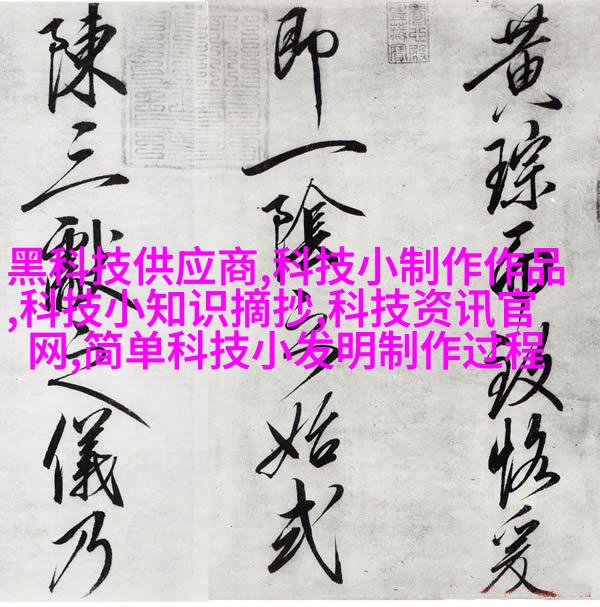 黄琮致恪爰
即一陰始式
陳三獻之儀乃
黑科技供应商,科技小制作作品
,科技小知识摘抄,科技资讯官
网,简单科技小发明制作过程